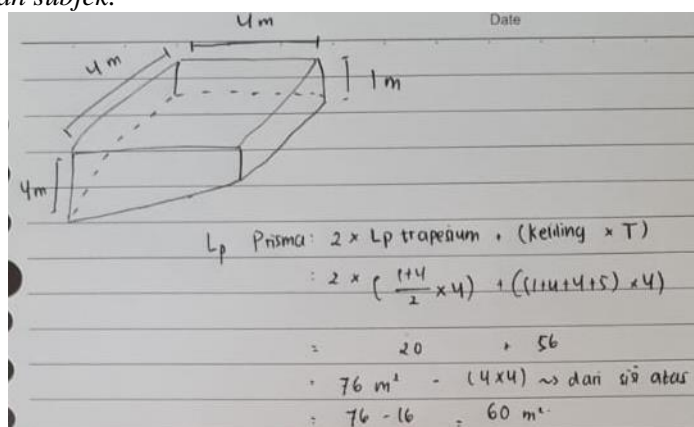 an subjek.
4m
Date
4m
1m
4m
Lp Prisma: 2 × Lp trapesium + (keliling × T)
: 2 × ( \frac{1+4}{2} × 4) + ((1+4+4+5) × 4)
= 20 + 56
= 76 m² - (4×4) ~> dari sisi atas
= 76 - 16 = 60 m².